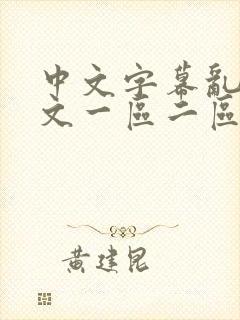 中文字幕亂
文一區二區
黃建昆